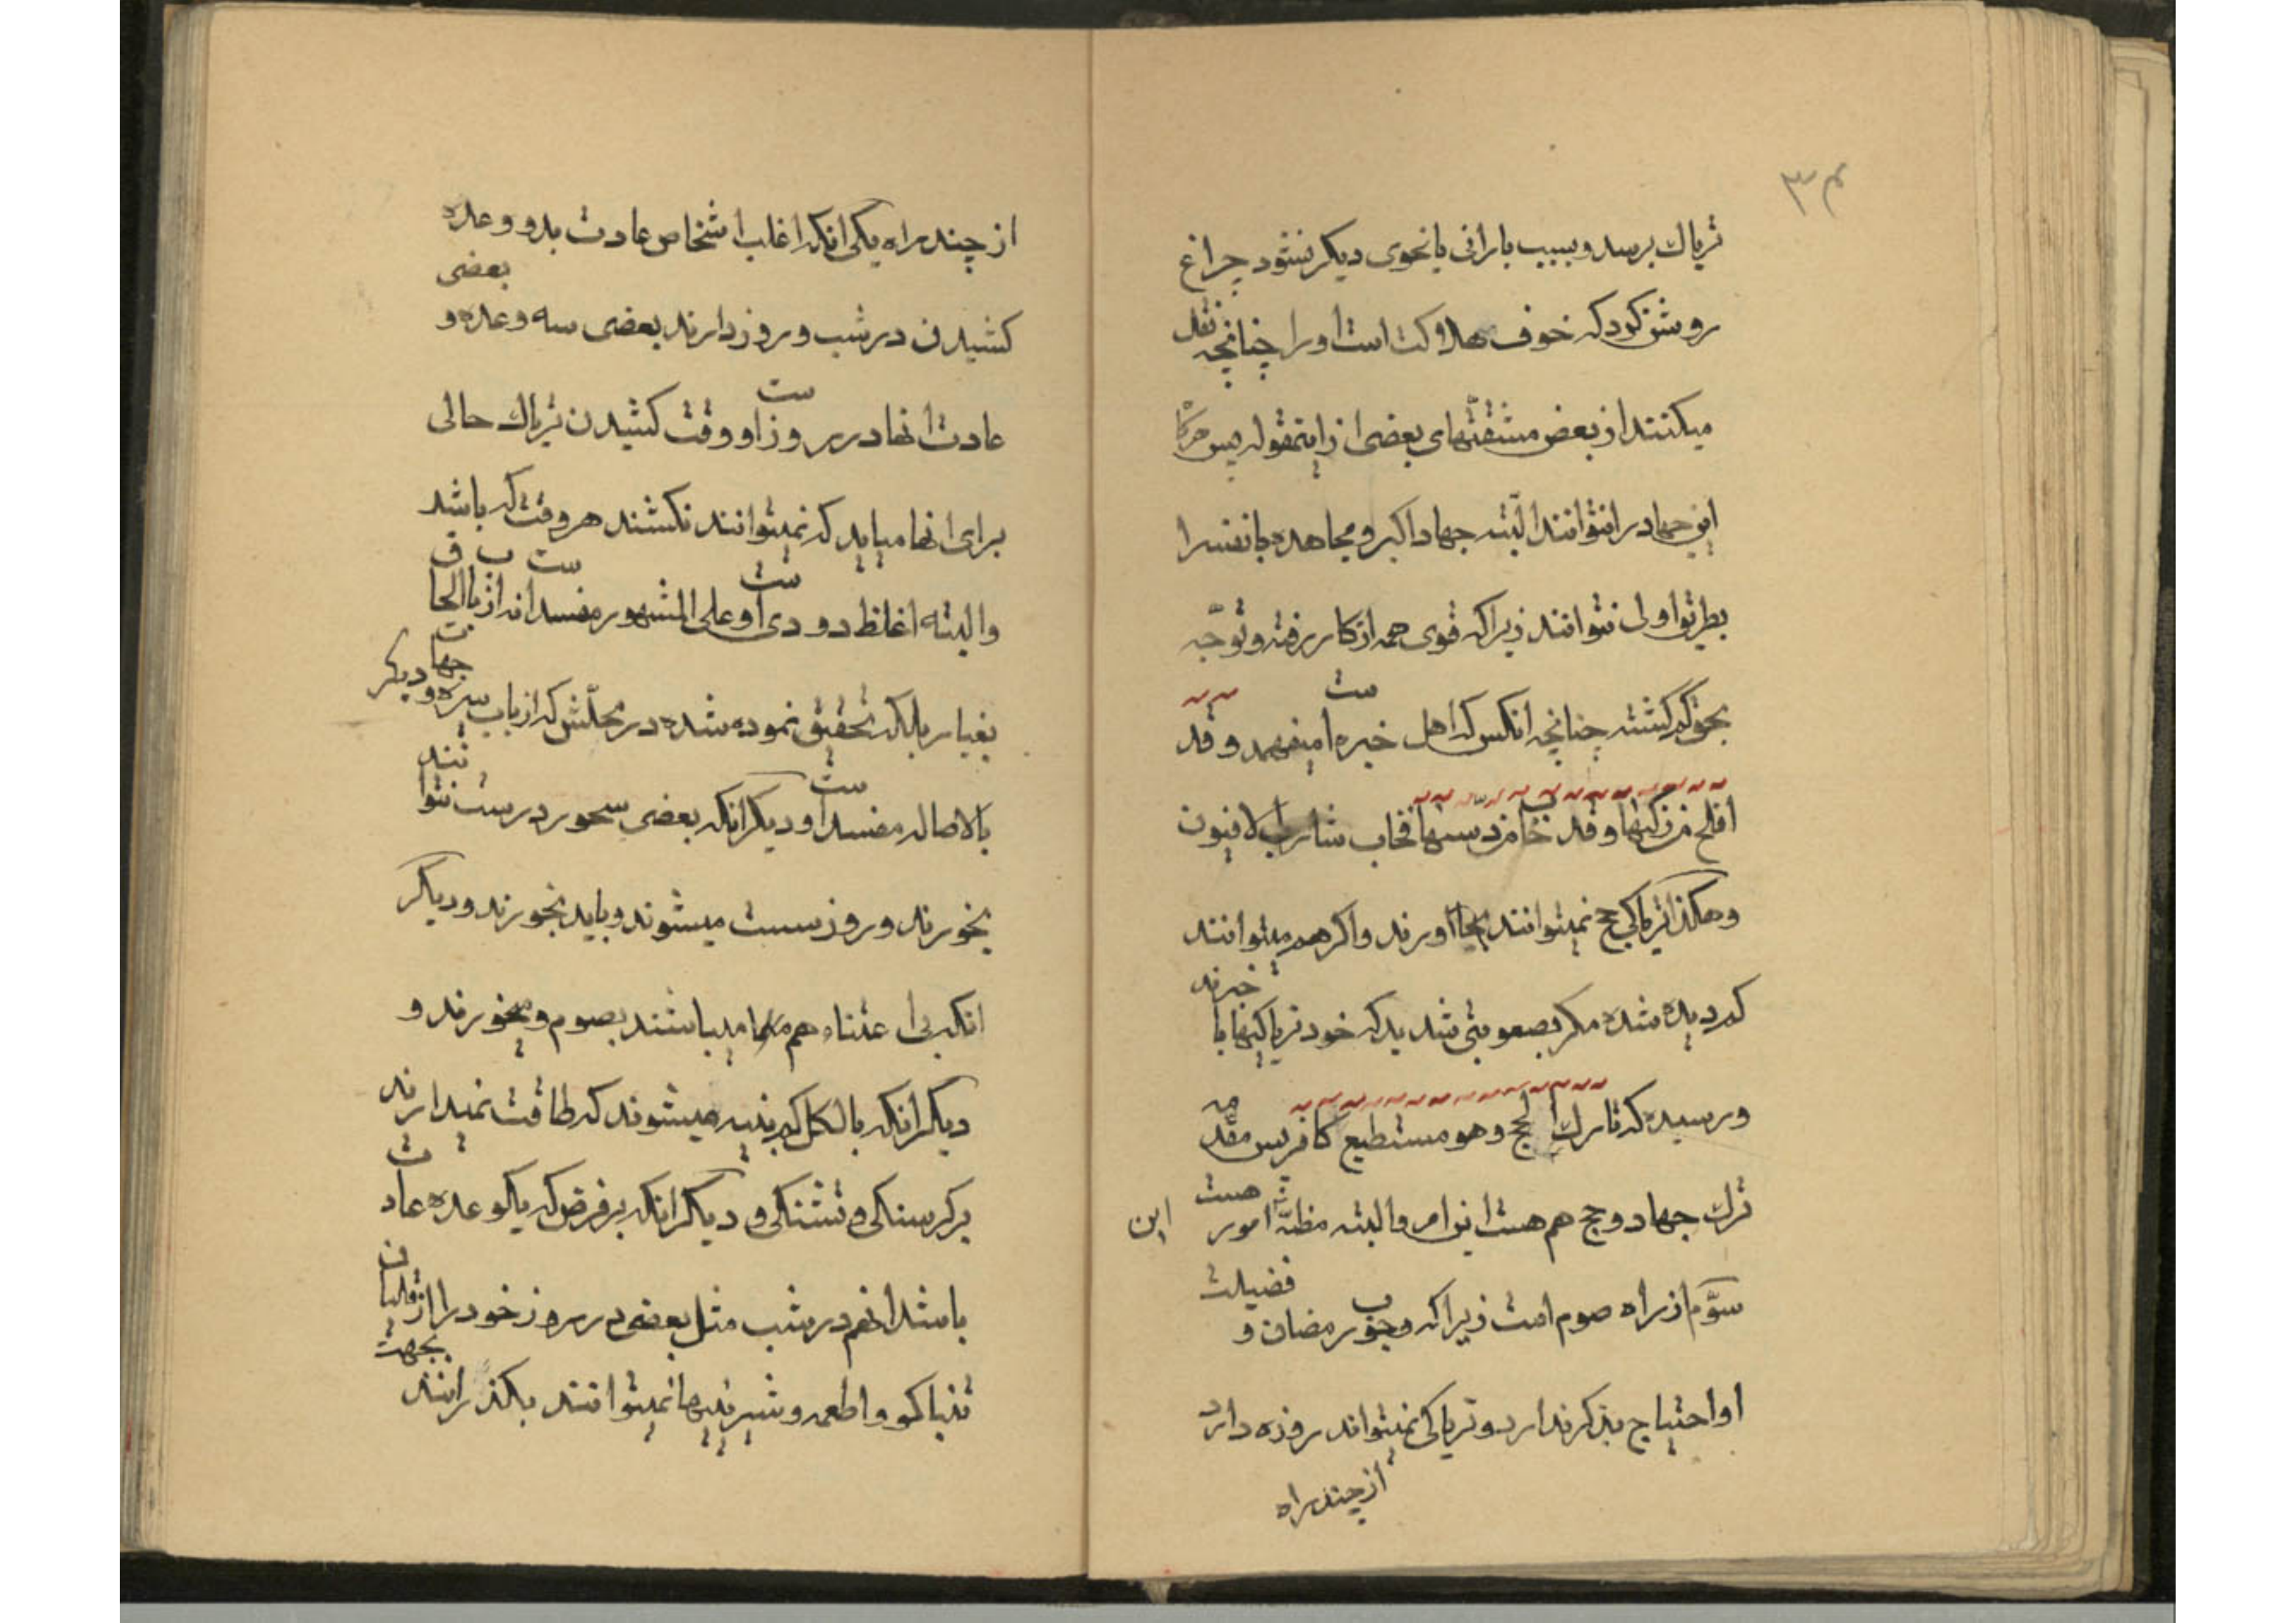 ۳۴
تریاك برسد و بسبب بارانی یا نحوی دیکر نشود چراغ
روشن کرد که خوف هلاکت است او را چنانچه نقل
میکنند از بعض مشقتهای بعضی از اینمقوله پس هرکا
این جهاد را نتوانند البته جهاد اکبر و مجاهده با نفس را
بطریق اولی نتوانند زیرا که قوی همه از کار رفته و توجه
بحق کم کشته چنانچه انکس که اهل خبره است میفهمد و قد
افلح من زکیها و قد خاب من دسیها فخاب شارب الافیون
و هکذا تریاکی حج نمیتوانند بجا اورند و اکر هم میتوانند
کم دیده شده مکر بصعوبتی شدید که خود تریاکیها با خبرند
و رسیده که تارك الحج و هو مستطیع کافر پس مقدمه
ترك جهاد و حج هم هست این امر و البته مظنه امور هست این
سوم از راه صوم است زیرا که وجوب رمضان و فضیلت
او احتیاج بذکر ندارد و تریاکی نمیتواند روزه دارد
از چند راه
از چند راه یکی انکه اغلب اشخاص عادت بدو وعده
کشیدن در شب و روز دارند بعضی سه وعده و بعضی
عادت انها در روز است و وقت کشیدن تریاك حالی
برای انها میاید که نمیتوانند نکشند هر وقت که باشد
و البته اغلظ دودی است و علی المشهور مفسد است نه از باب الحاق
بغبار بلکه تحقیق نموده شده در محلش که از باب سیره و جهات دیکر
بالاصاله مفسد است و دیکر انکه بعضی سحور درست نتوانند
بخورند و روز سست میشوند و باید بخورند و دیکر
انکه بی اعتناء هم میباشند بصوم و میخورند و
دیکر انکه بالکل کم بنیه میشوند که طاقت نمیدارند
بر کرسنکی و تشنکی و دیکر انکه بر فرض که یك وعده عادت
باشد انهم در شب مثل بعضی در روز خود را از قلیان
تنباکو و اطعمه و شیرینیها نمیتوانند بکذرانند بجهت